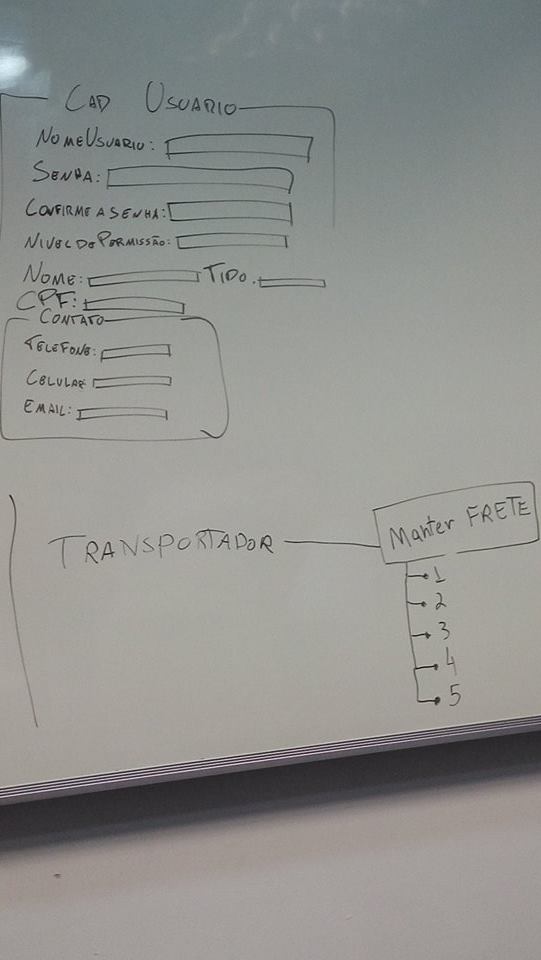 CAD USUARIO
NOMEUSUARIO:
SENHA:
CONFIRME A SENHA:
NIVEL DE PERMISSÃO:
NOME: TIDO.
CPF:
CONTATO
TELEFONE:
CELULAR
EMAIL:
TRANSPORTADOR Manter FRETE
1
2
3
4
5